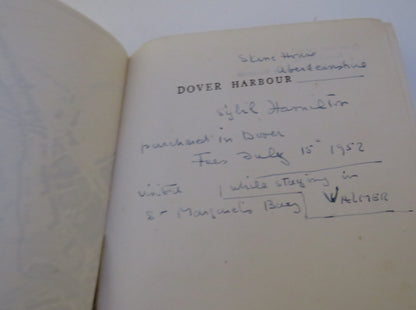 Skene House
Aberdeenshire
DOVER HARBOUR
Sybil Hamilton
purchased in Dover
Tues July 15 1952
visited while staying in
St Margaret's Bay WALMER